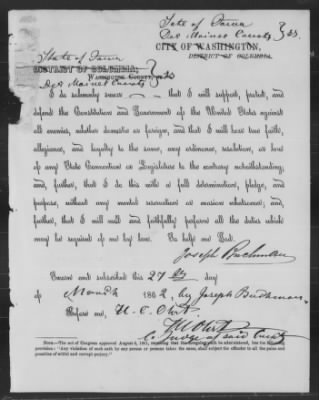 State of Iowa
Des Moines County } ss.
CITY OF WASHINGTON,
DISTRICT OF COLUMBIA.
State of Iowa
DISTRICT OF COLUMBIA,
WASHINGTON COUNTY, } ss
Des Moines County
I do solemnly swear — that I will support, protect, and
defend the Constitution and Government of the United States against
all enemies, whether domestic or foreign, and that I will bear true faith,
allegiance, and loyalty to the same, any ordinance, resolution, or law
of any State Convention or Legislature to the contrary notwithstanding;
and, further, that I do this with a full determination, pledge, and
purpose, without any mental reservation or evasion whatsoever; and,
further, that I will well and faithfully perform all the duties which
may be required of me by law. So help me God.
Joseph Buchman
Sworn and subscribed this 27 day
of March 1862, by Joseph
Before me,
Co Judge of said County
NOTE.—The act of Congress approved August 6, 1861, requiring that foregoing oath be administered, has the following
provision: "Any violation of such oath by any person or persons taking the same, shall subject the offender to all the pains and
penalties of wilful and corrupt perjury."